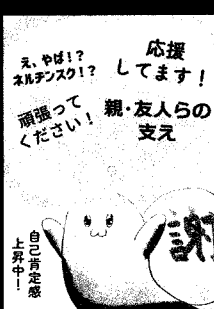 え、やば!?
ネルチンスク!?
応援
してます!
頑張って
ください!
親・友人らの
支え
自己肯定感
上昇中!
謝